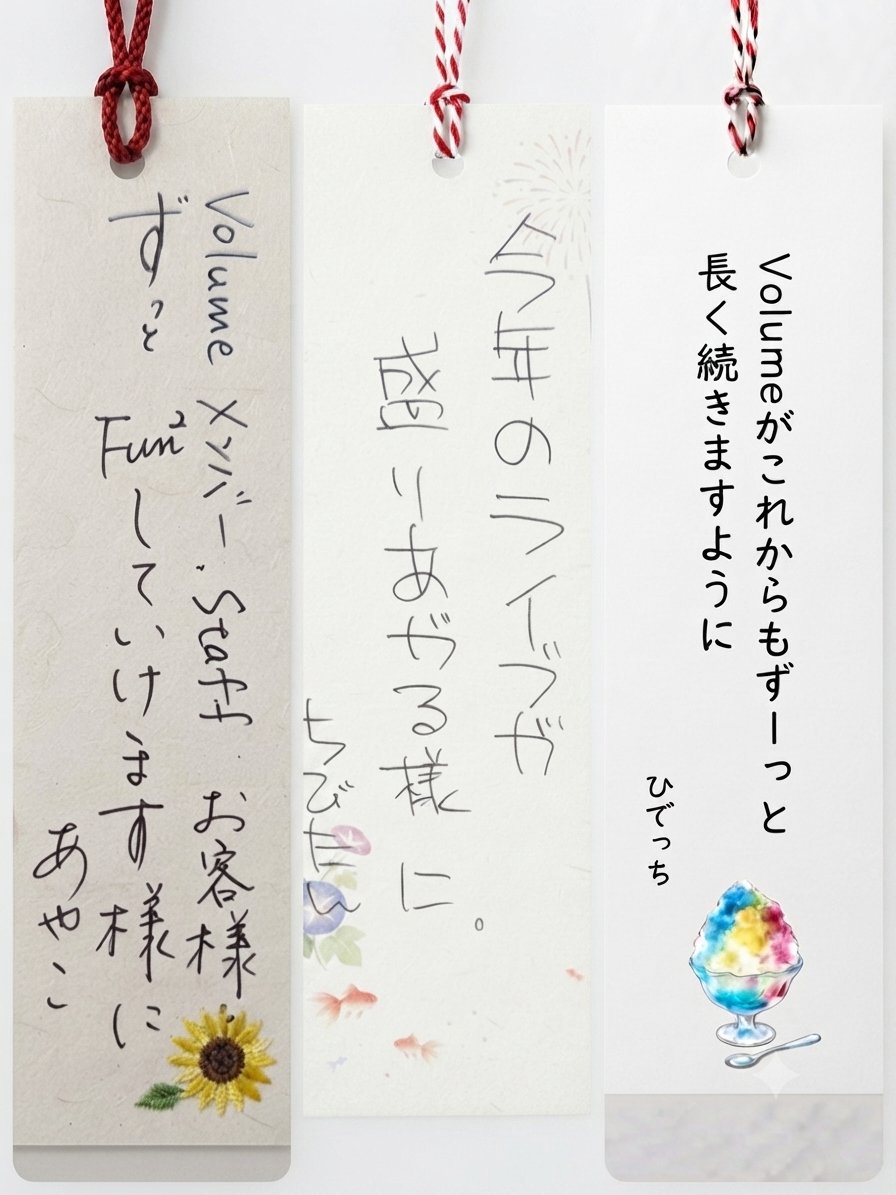 Volume メンバー.Staff お客様.
ずっと Fun²していけます様に
あやこ
今年のライブが
盛りあがる様に。
ちびせん
Volumeがこれからもずーっと
長く続きますように
ひでっち